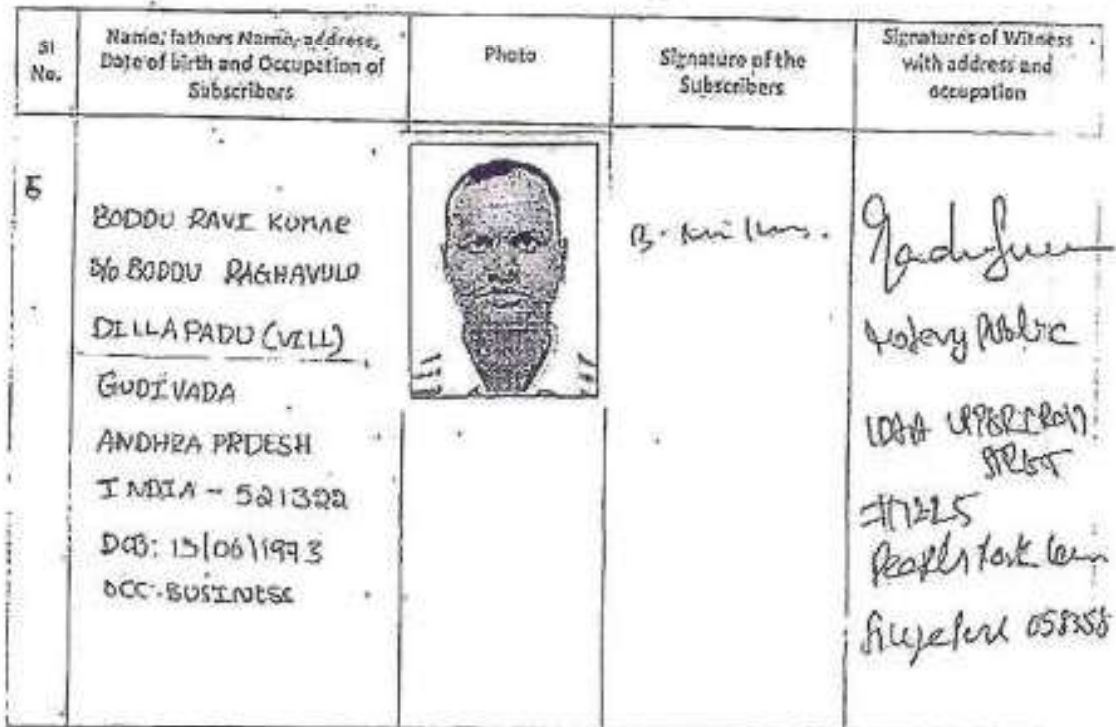 Sl
No.
Name, fathers Name, address,
Date of birth and Occupation of
Subscribers
Photo
Signature of the
Subscribers
Signatures of Witness
with address and
occupation
5
BODDU RAVI KUMAR
S/o BODDU RAGHAVULU
DILLAPADU (VILL)
GUDIVADA
ANDHRA PRDESH
INDIA - 521322
DOB: 15/06/1973
OCC-BUSINESS
B.
Notary Public
UPPER CROSS
STREET
People's Park
Singapore 058358